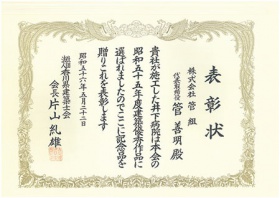 表彰状
株式会社 菅組
代表取締役 菅善明殿
貴社が施工した井下病院は本会の
昭和五十五年度建築優秀作品に
選ばれましたのでここに記念品を
贈りこれを表彰します
昭和五十六年五月二十三日
香川県建築士会
会長 片山乣雄